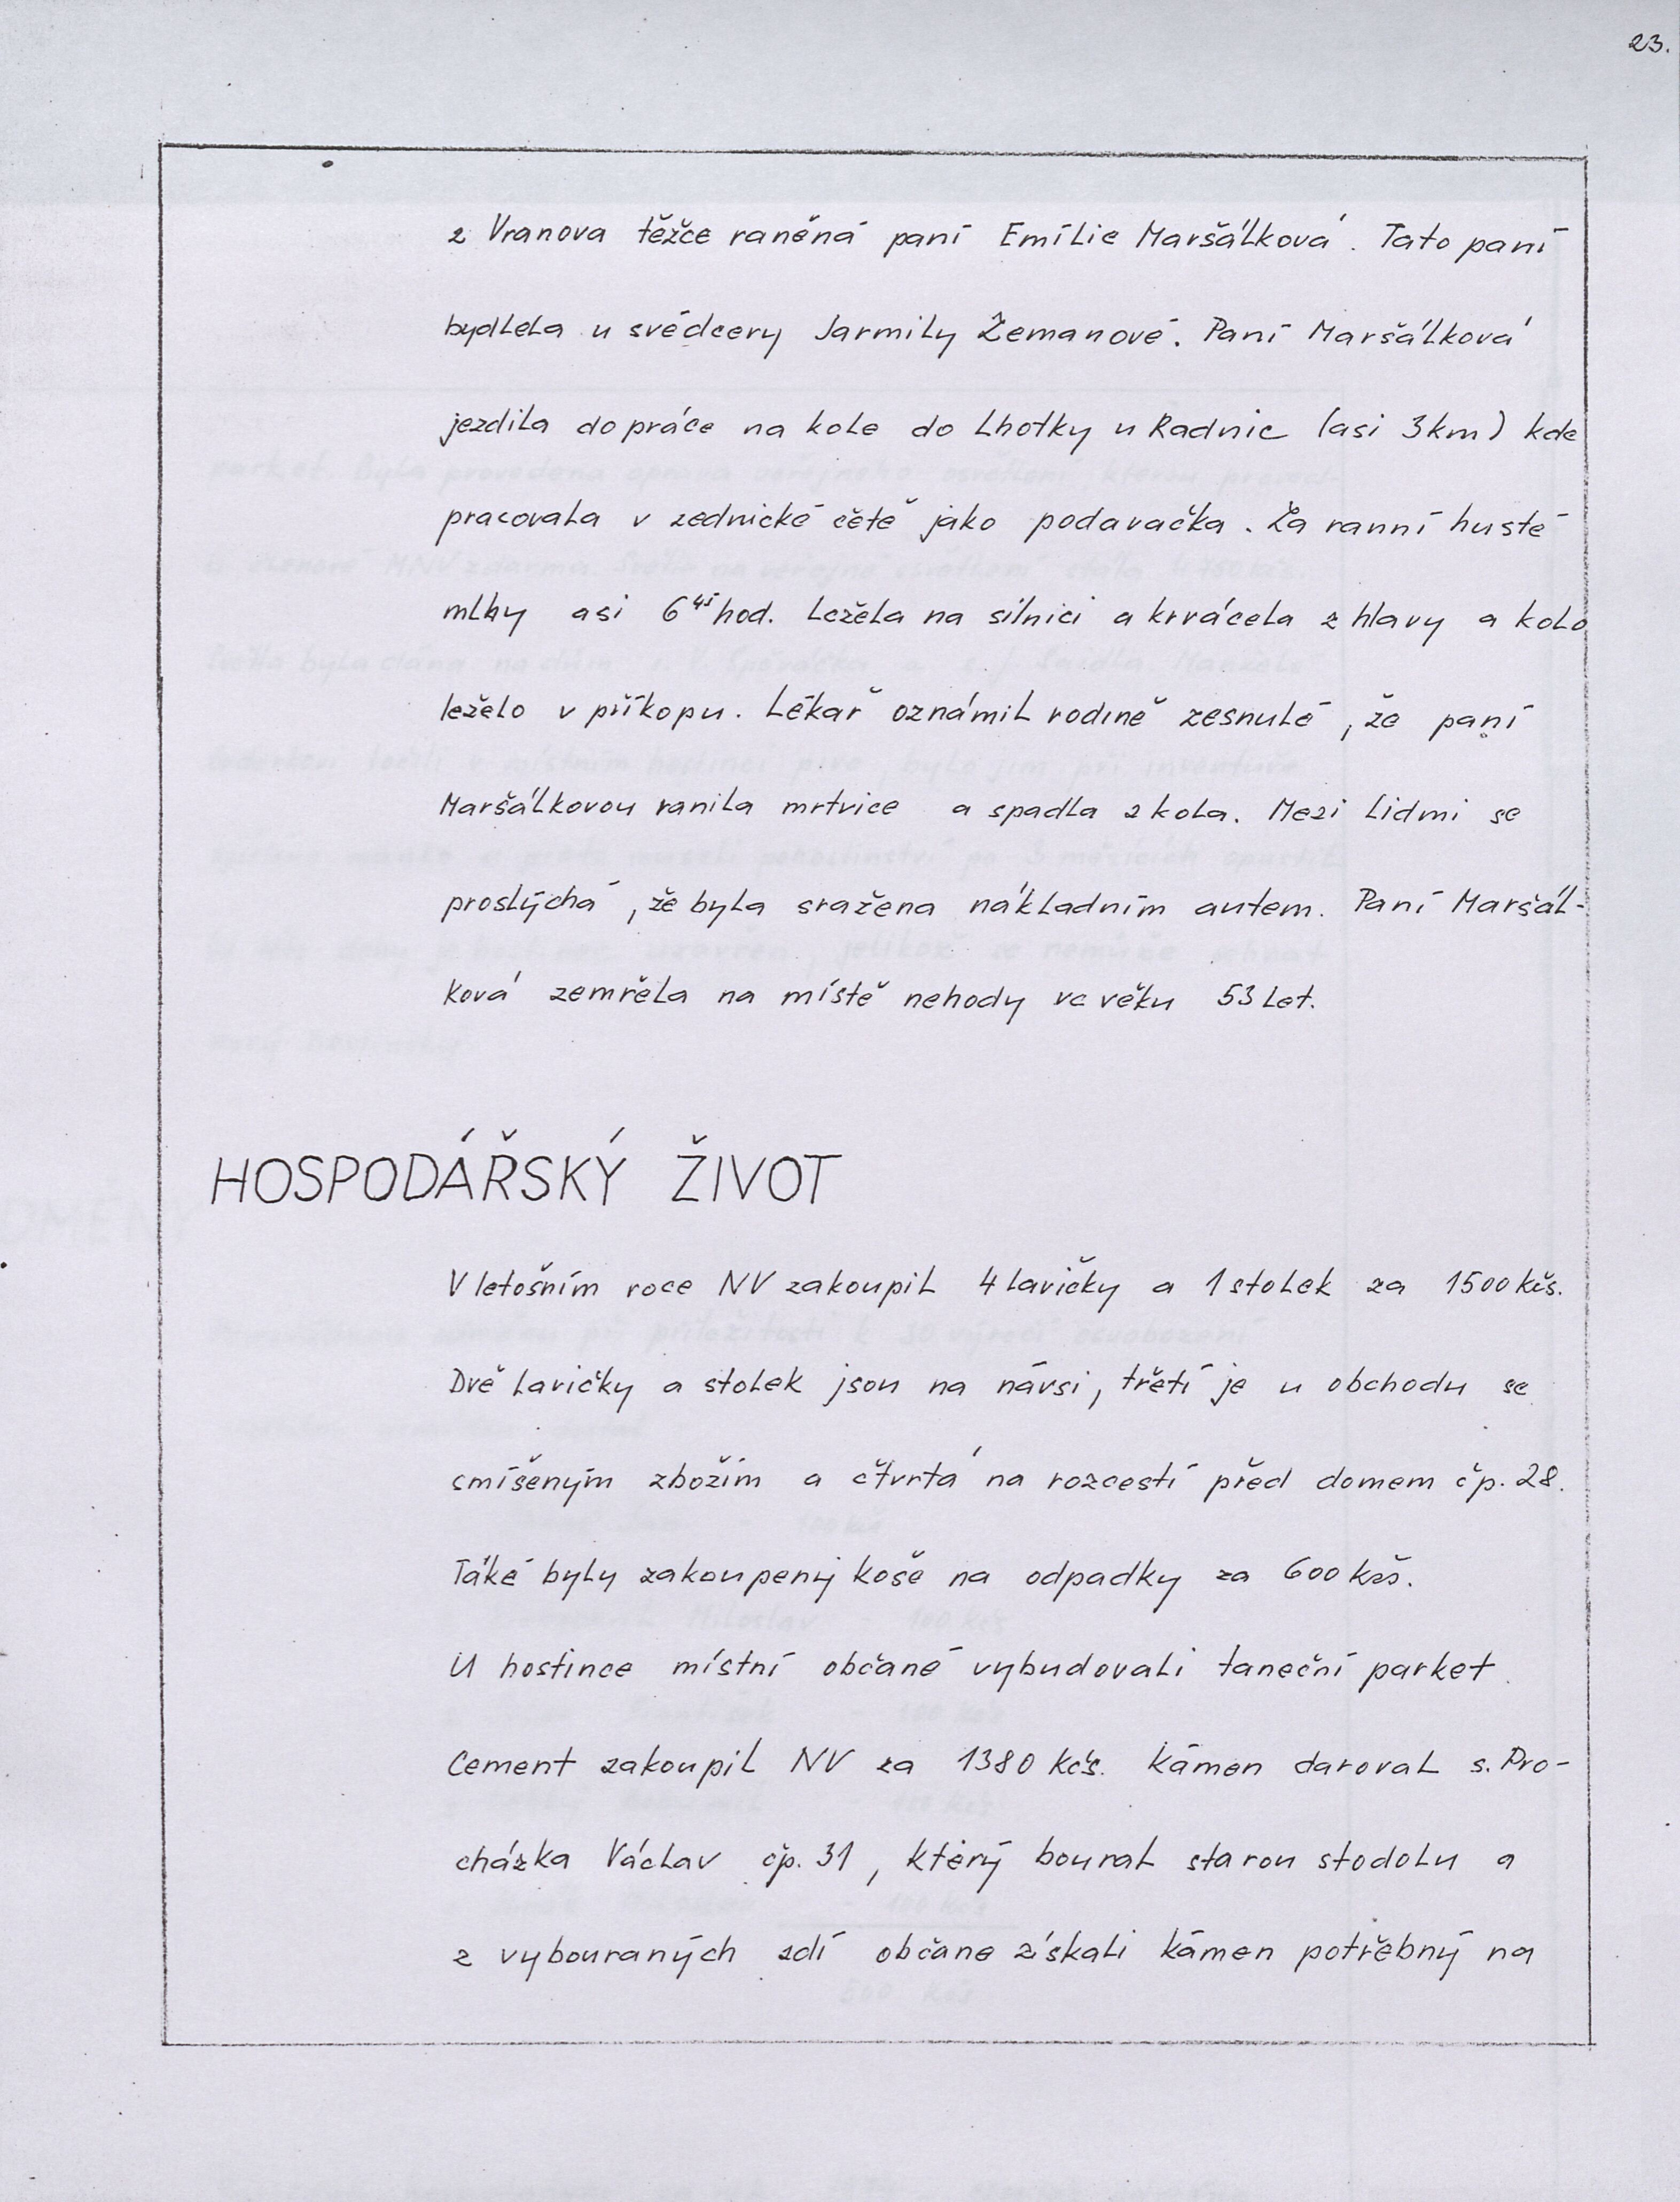 23.
z Vranova těžce raněná paní Emílie Maršálková. Tato paní
bydlela u svédcery Jarmily Zemanové. Paní Maršálková
jezdila do práce na kole do Lhotky u Radnic (asi 3 km) kde
pracovala v zednické četě jako podavačka. Za ranní husté
mlhy asi 6 45 hod. ležela na silnici a krvácela z hlavy a kolo
leželo v příkopu. Lékař oznámil rodině zesnulé, že paní
Maršálkovou ranila mrtvice a spadla z kola. Mezi lidmi se
proslýchá, že byla sražena nákladním autem. Paní Maršál-
ková zemřela na místě nehody ve věku 53 let.
HOSPODÁŘSKÝ ŽIVOT
V letošním roce NV zakoupil 4 lavičky a 1 stolek za 1500 kčs.
Dvě lavičky a stolek jsou na návsi, třetí je u obchodu se
smíšeným zbožím a čtvrtá na rozcestí před domem čp. 28.
Také byly zakoupeny koše na odpadky za 600 kčs.
U hostince místní občané vybudovali taneční parket.
Cement zakoupil NV za 1380 kčs. Kámen daroval s. Pro-
cházka Václav čp. 31, který boural starou stodolu a
z vybouraných zdí občane získali kámen potřebný na